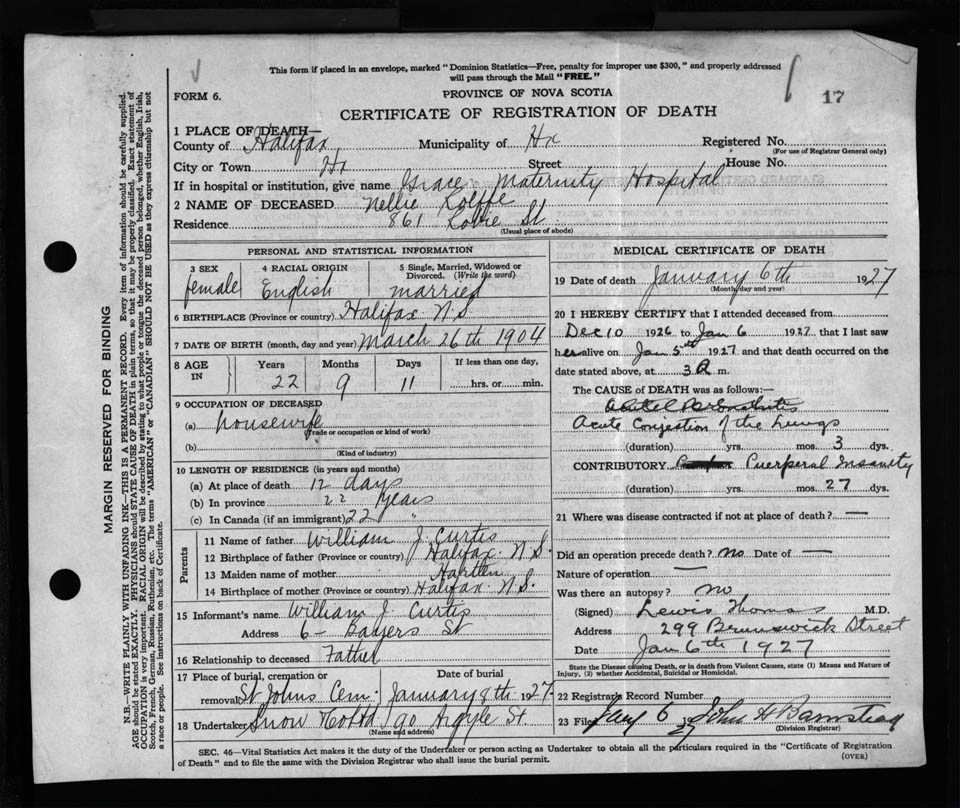 This form if placed in an envelope, marked "Dominion Statistics—Free, penalty for improper use $300," and properly addressed
will pass through the Mail "FREE."
FORM 6.
PROVINCE OF NOVA SCOTIA
17
CERTIFICATE OF REGISTRATION OF DEATH
1 PLACE OF DEATH—
County of Halifax Municipality of Hx Registered No.
(For use of Registrar General only)
City or Town Hx Street House No.
If in hospital or institution, give name Grace Maternity Hospital
2 NAME OF DECEASED Nellie Rolffe
Residence 861 St
(Usual place of abode)
PERSONAL AND STATISTICAL INFORMATION
3 SEX 4 RACIAL ORIGIN 5 Single, Married, Widowed or
Divorced. (Write the word)
female English married
6 BIRTHPLACE (Province or country) Halifax N.S.
7 DATE OF BIRTH (month, day and year) March 26th 1904
8 AGE IN Years Months Days If less than one day,
22 9 11 hrs. or min.
9 OCCUPATION OF DECEASED
(a) housewife
(Trade or occupation or kind of work)
(b)
(Kind of industry)
10 LENGTH OF RESIDENCE (in years and months)
(a) At place of death 12 days
(b) In province 22 years
(c) In Canada (if an immigrant) 22 "
Parents
11 Name of father William J. Curtis
12 Birthplace of father (Province or country) Halifax N.S.
13 Maiden name of mother Hartlen
14 Birthplace of mother (Province or country) Halifax N.S.
15 Informant's name William J. Curtis
Address 6 – Bayers St
16 Relationship to deceased Father
17 Place of burial, cremation or removal Date of burial
St Johns Cem. January 8th 1927
18 Undertaker Snow & Co Ltd 90 Argyle St.
(Name and address)
MEDICAL CERTIFICATE OF DEATH
19 Date of death January 6th 1927
(Month, day and year)
20 I HEREBY CERTIFY that I attended deceased from
Dec 10 1926 to Jan 6 1927 that I last saw
her alive on Jan 5th 1927 and that death occurred on the
date stated above, at 3 A m.
The CAUSE of DEATH was as follows:—
Acute Congestion of the Lungs
(duration) yrs. mos. 3 dys.
CONTRIBUTORY Puerperal Insanity
(duration) yrs. mos. 27 dys.
21 Where was disease contracted if not at place of death? —
Did an operation precede death? No Date of —
Nature of operation —
Was there an autopsy? No
(Signed) Lewis Thomas M.D.
Address 299 Brunswick Street
Date Jan 6th 1927
State the Disease causing Death, or in death from Violent Causes, state (1) Means and Nature of
Injury, (2) whether Accidental, Suicidal or Homicidal.
22 Registrar's Record Number
23 Filed Jany 6 27 John H Barnstead
(Division Registrar)
SEC. 46—Vital Statistics Act makes it the duty of the Undertaker or person acting as Undertaker to obtain all the particulars required in the "Certificate of Registration
of Death" and to file the same with the Division Registrar who shall issue the burial permit.
(OVER)
MARGIN RESERVED FOR BINDING
N.B.—WRITE PLAINLY WITH UNFADING INK—THIS IS A PERMANENT RECORD. Every item of information should be carefully supplied.
AGE should be stated EXACTLY. PHYSICIANS should STATE CAUSE OF DEATH in plain terms, so that it may be properly classified. Exact statement of
OCCUPATION is very important. RACIAL ORIGIN will be described by stating to what people or tongue the deceased person belonged, whether English, Irish,
Scotch, French, German, Russian, Ruthenian, etc. The terms "AMERICAN" or "CANADIAN" SHOULD NOT BE USED as they express citizenship but not
a race or people. See instructions on back of Certificate.